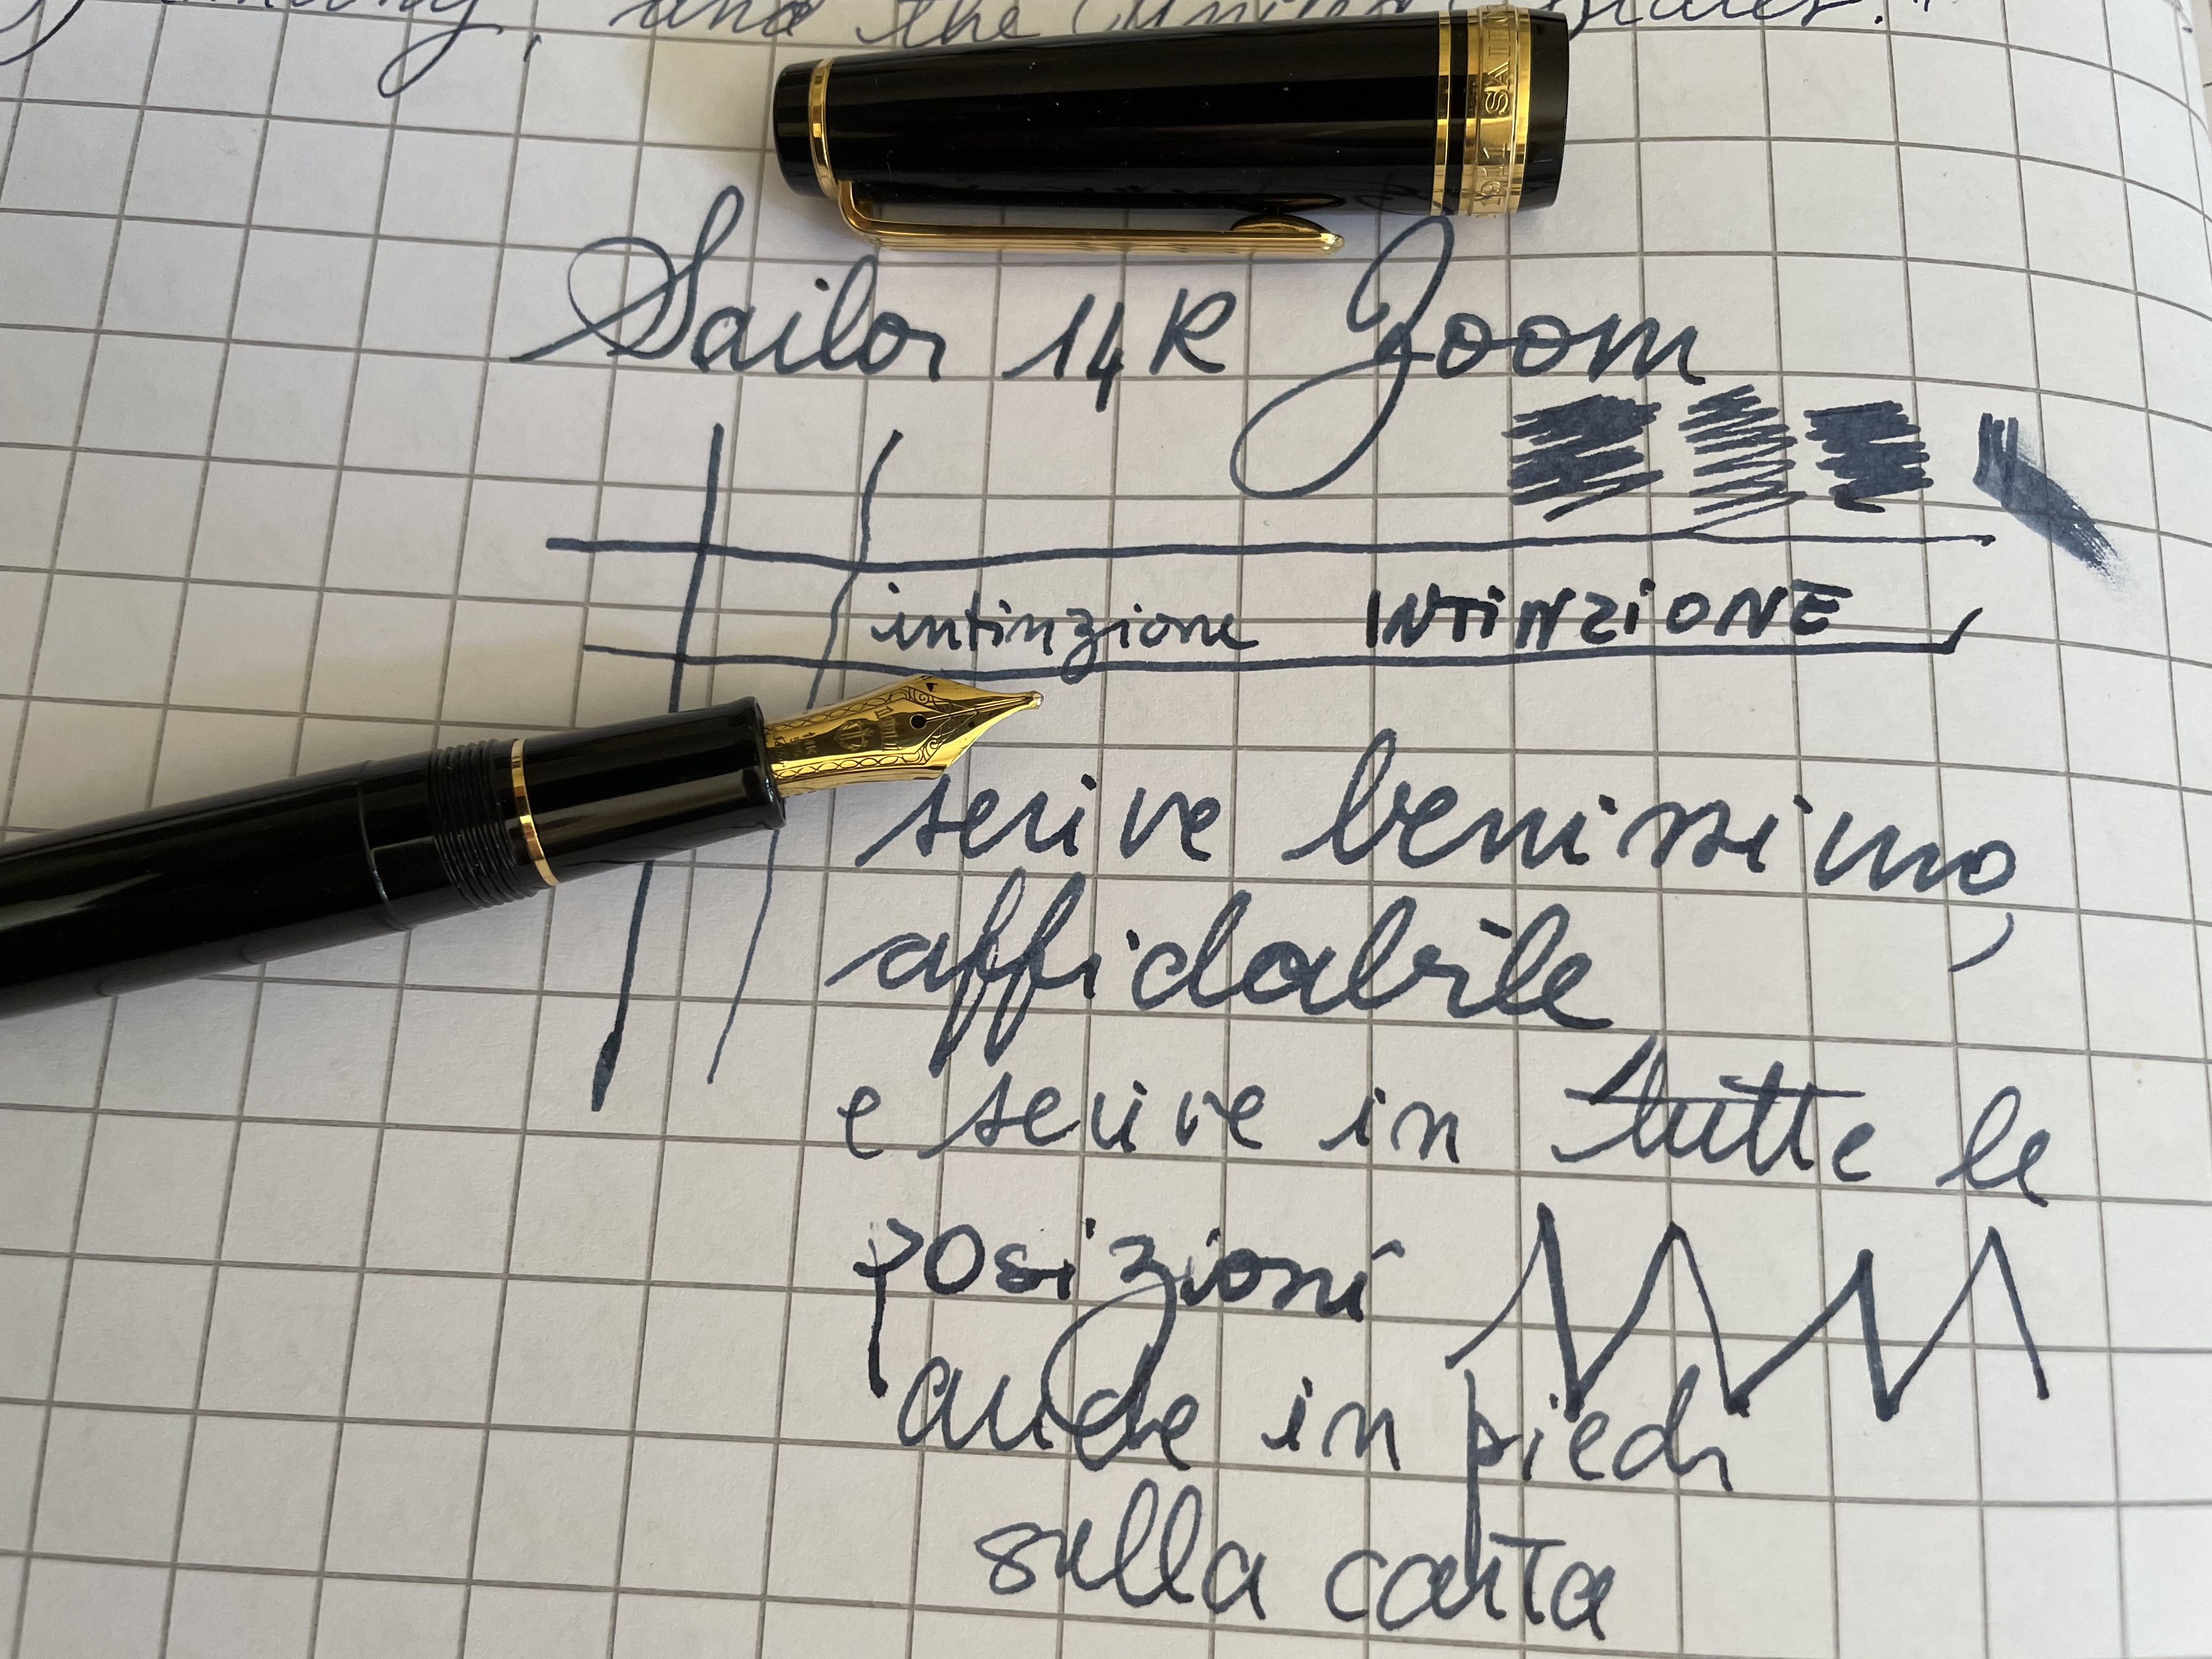 and the United States."
SAIL
Sailor 14K Zoom
intinzione INTiNZiONE
scrive benissimo,
affidabile
e scrive in tutte le
posizioni
anche in piedi
sulla carta